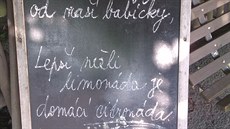 od naší babičky,
Lepší nežli
limonáda je
domácí citronáda.